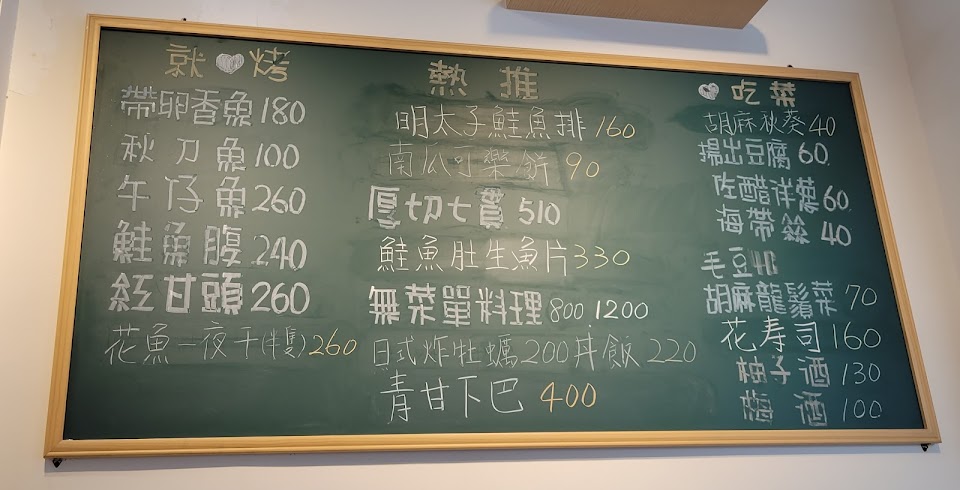 就烤
帶卵香魚180
秋刀魚100
午仔魚260
鮭魚腹240
紅甘頭260
花魚一夜干(半隻)260
熱推
明太子鮭魚排160
南瓜可樂餅90
厚切七貫510
鮭魚肚生魚片330
無菜單料理800.1200
日式炸牡蠣200丼飯220
青甘下巴400
吃菜
胡麻秋葵40
揚出豆腐60
佐醋洋蔥60
海帶絲40
毛豆40
胡麻龍鬚菜70
花寿司160
柚子酒130
梅酒100